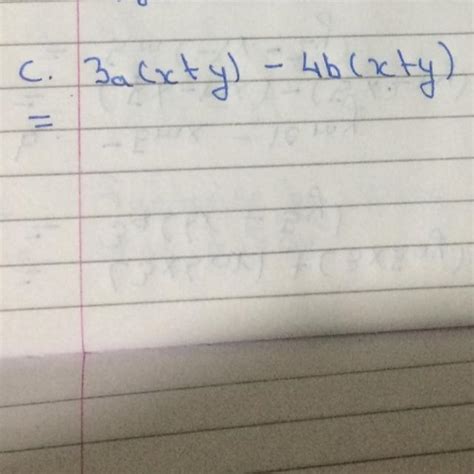 c. 3a(x+y) - 4b(x+y)
=